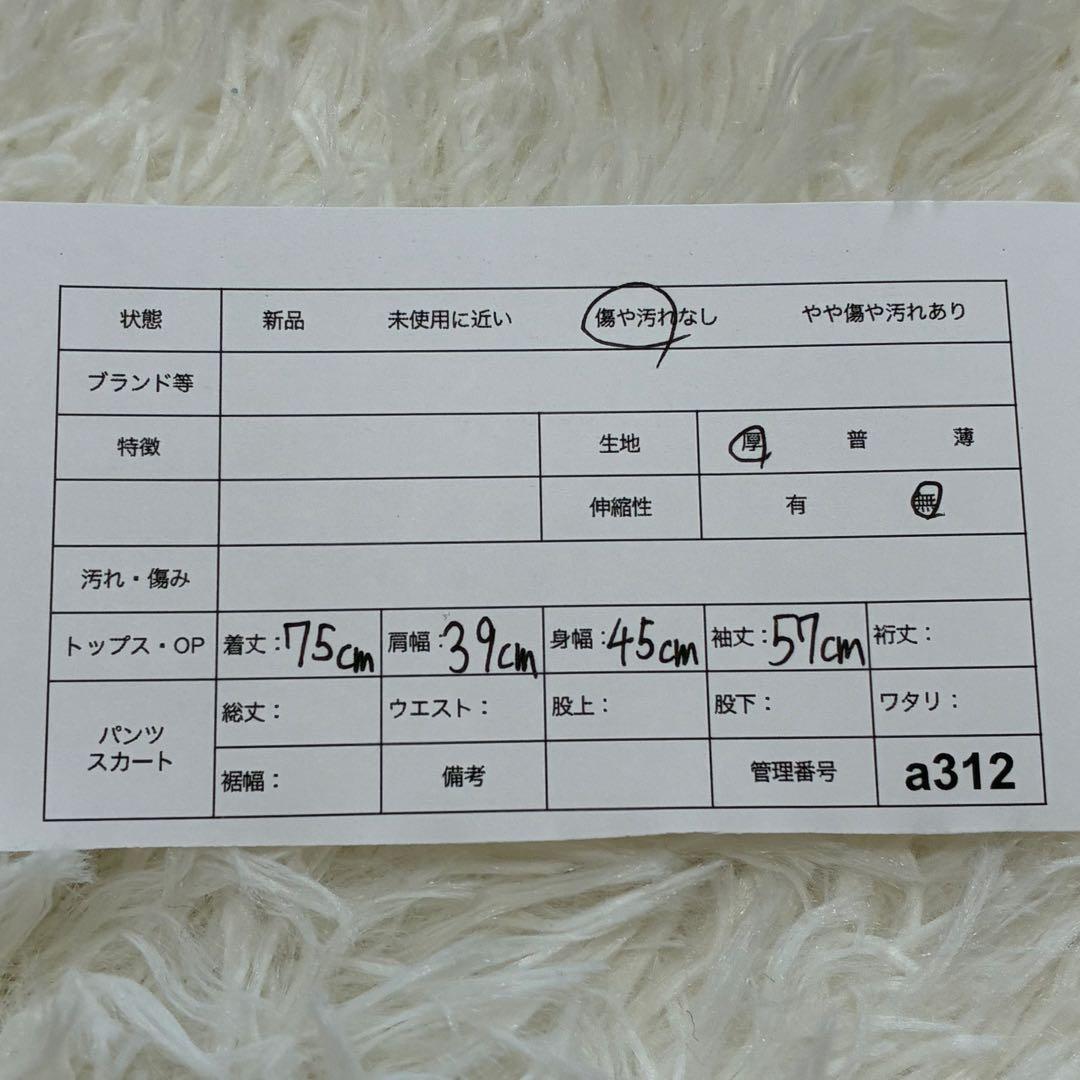 状態 新品 未使用に近い 傷や汚れなし やや傷や汚れあり
ブランド等
特徴 生地 厚 普 薄
伸縮性 有 無
汚れ・傷み
トップス・OP 着丈:75cm 肩幅:39cm 身幅:45cm 袖丈:57cm 裄丈:
パンツ
スカート
総丈: ウエスト: 股上: 股下: ワタリ:
裾幅: 備考 管理番号 a312